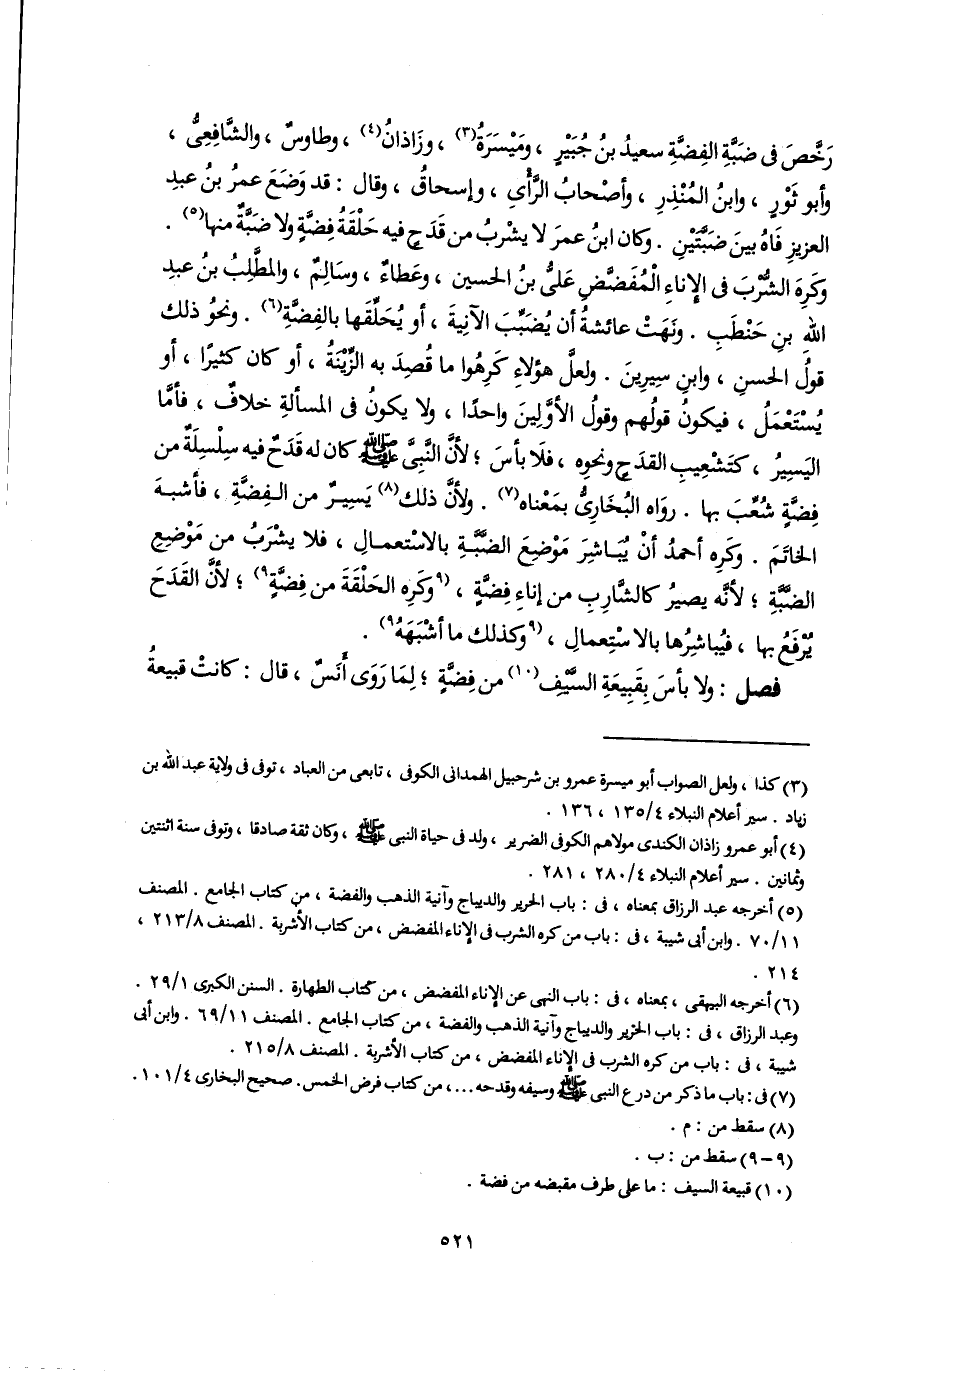 رَخَّصَ فى ضَبَّةِ الفِضَّةِ سعيدُ بنُ جُبَيْرٍ ، ومَيْسَرَةُ(٣) ، وزَاذانُ(٤) ، وطاوسٌ ، والشَّافِعِىُّ ،
وأبو ثَوْرٍ ، وابنُ المُنْذِرِ ، وأصْحابُ الرَّأْىِ ، وإسحاقُ ، وقال : قد وَضَعَ عمرُ بنُ عبدِ
العزيزِ فَاهُ بينَ ضَبَّتَيْنِ . وكان ابنُ عمرَ لا يشربُ من قَدَحٍ فيه حَلْقَةُ فِضَّةٍ ولا ضَبَّةٌ منها(٥) .
وكَرِهَ الشُّرْبَ فى الإِناءِ الْمُفَضَّضِ علىُّ بنُ الحسين ، وعَطاءٌ ، وسَالِمٌ ، والمطَّلِبُ بنُ عبدِ
اللهِ بنِ حَنْطَبٍ . ونَهَتْ عائشةُ أن يُضَبَّبَ الآنيةَ ، أو يُحَلِّقَها بالفِضَّةِ(٦) . ونحوُ ذلك
قولُ الحسنِ ، وابنِ سِيرِينَ . ولعلَّ هؤلاءِ كَرِهُوا ما قُصِدَ به الزِّيْنَةُ ، أو كان كثيرًا ، أو
يُسْتَعْمَلُ ، فيكونُ قولُهم وقولُ الأوَّلِينَ واحدًا ، ولا يكونُ فى المسألةِ خلافٌ ، فأمَّا
اليَسِيرُ ، كتَشْعِيبِ القدَحِ ونحوِه ، فلَا بأسَ ؛ لأنَّ النَّبِىَّ ﷺ كان له قَدَحٌ فيه سِلْسِلَةٌ من
فِضَّةٍ شُعِّبَ بها . روَاه البُخَارِىُّ بمَعْناه(٧) . ولأنَّ ذلك(٨) يَسِيرٌ من الفِضَّةِ ، فأشبهَ
الخاتَمَ . وكَرِه أحمدُ أنْ يُبَاشِرَ مَوْضِعَ الضَّبَّةِ بالاسْتعمالِ ، فلا يشْرَبُ من مَوْضِعِ
الضَّبَّةِ ؛ لأنَّه يصيرُ كالشَّارِبِ من إناءِ فِضَّةٍ ، (٩وكَرِه الحَلْقَةَ من فِضَّةٍ٩) ؛ لأنَّ القَدَحَ
يُرْفَعُ بها ، فيُباشِرُها بالاسْتِعمالِ ، (٩وكذلك ما أشْبَهَهُ٩) .
فصل : ولا بأسَ بِقَبِيعَةِ السَّيْفِ(١٠) من فِضَّةٍ ؛ لِمَا رَوَى أَنَسٌ ، قال : كانتْ قبيعةُ
(٣) كذا ، ولعل الصواب أبو ميسرة عمرو بن شرحبيل الهمدانى الكوفى ، تابعى من العباد ، توفى فى ولاية عبد الله بن
زياد . سير أعلام النبلاء ٤/١٣٥ ، ١٣٦ .
(٤) أبو عمرو زاذان الكندى مولاهم الكوفى الضرير ، ولد فى حياة النبى ﷺ ، وكان ثقة صادقا ، وتوفى سنة اثنتين
وثمانين . سير أعلام النبلاء ٤/٢٨٠ ، ٢٨١ .
(٥) أخرجه عبد الرزاق بمعناه ، فى : باب الحرير والديباج وآنية الذهب والفضة ، من كتاب الجامع . المصنف
١١/٧٠ . وابن أبى شيبة ، فى : باب من كره الشرب فى الإناء المفضض ، من كتاب الأشربة . المصنف ٨/٢١٣ ،
٢١٤ .
(٦) أخرجه البيهقى ، بمعناه ، فى : باب النهى عن الإناء المفضض ، من كتاب الطهارة . السنن الكبرى ١/٢٩ .
وعبد الرزاق ، فى : باب الحرير والديباج وآنية الذهب والفضة ، من كتاب الجامع . المصنف ١١/٦٩ . وابن أبى
شيبة ، فى : باب من كره الشرب فى الإناء المفضض ، من كتاب الأشربة . المصنف ٨/٢١٥ .
(٧) فى : باب ما ذكر من درع النبى ﷺ وسيفه وقدحه ... ، من كتاب فرض الخمس . صحيح البخارى ٤/١٠١ .
(٨) سقط من : م .
(٩-٩) سقط من : ب .
(١٠) قبيعة السيف : ما على طرف مقبضه من فضة .
٥٢١